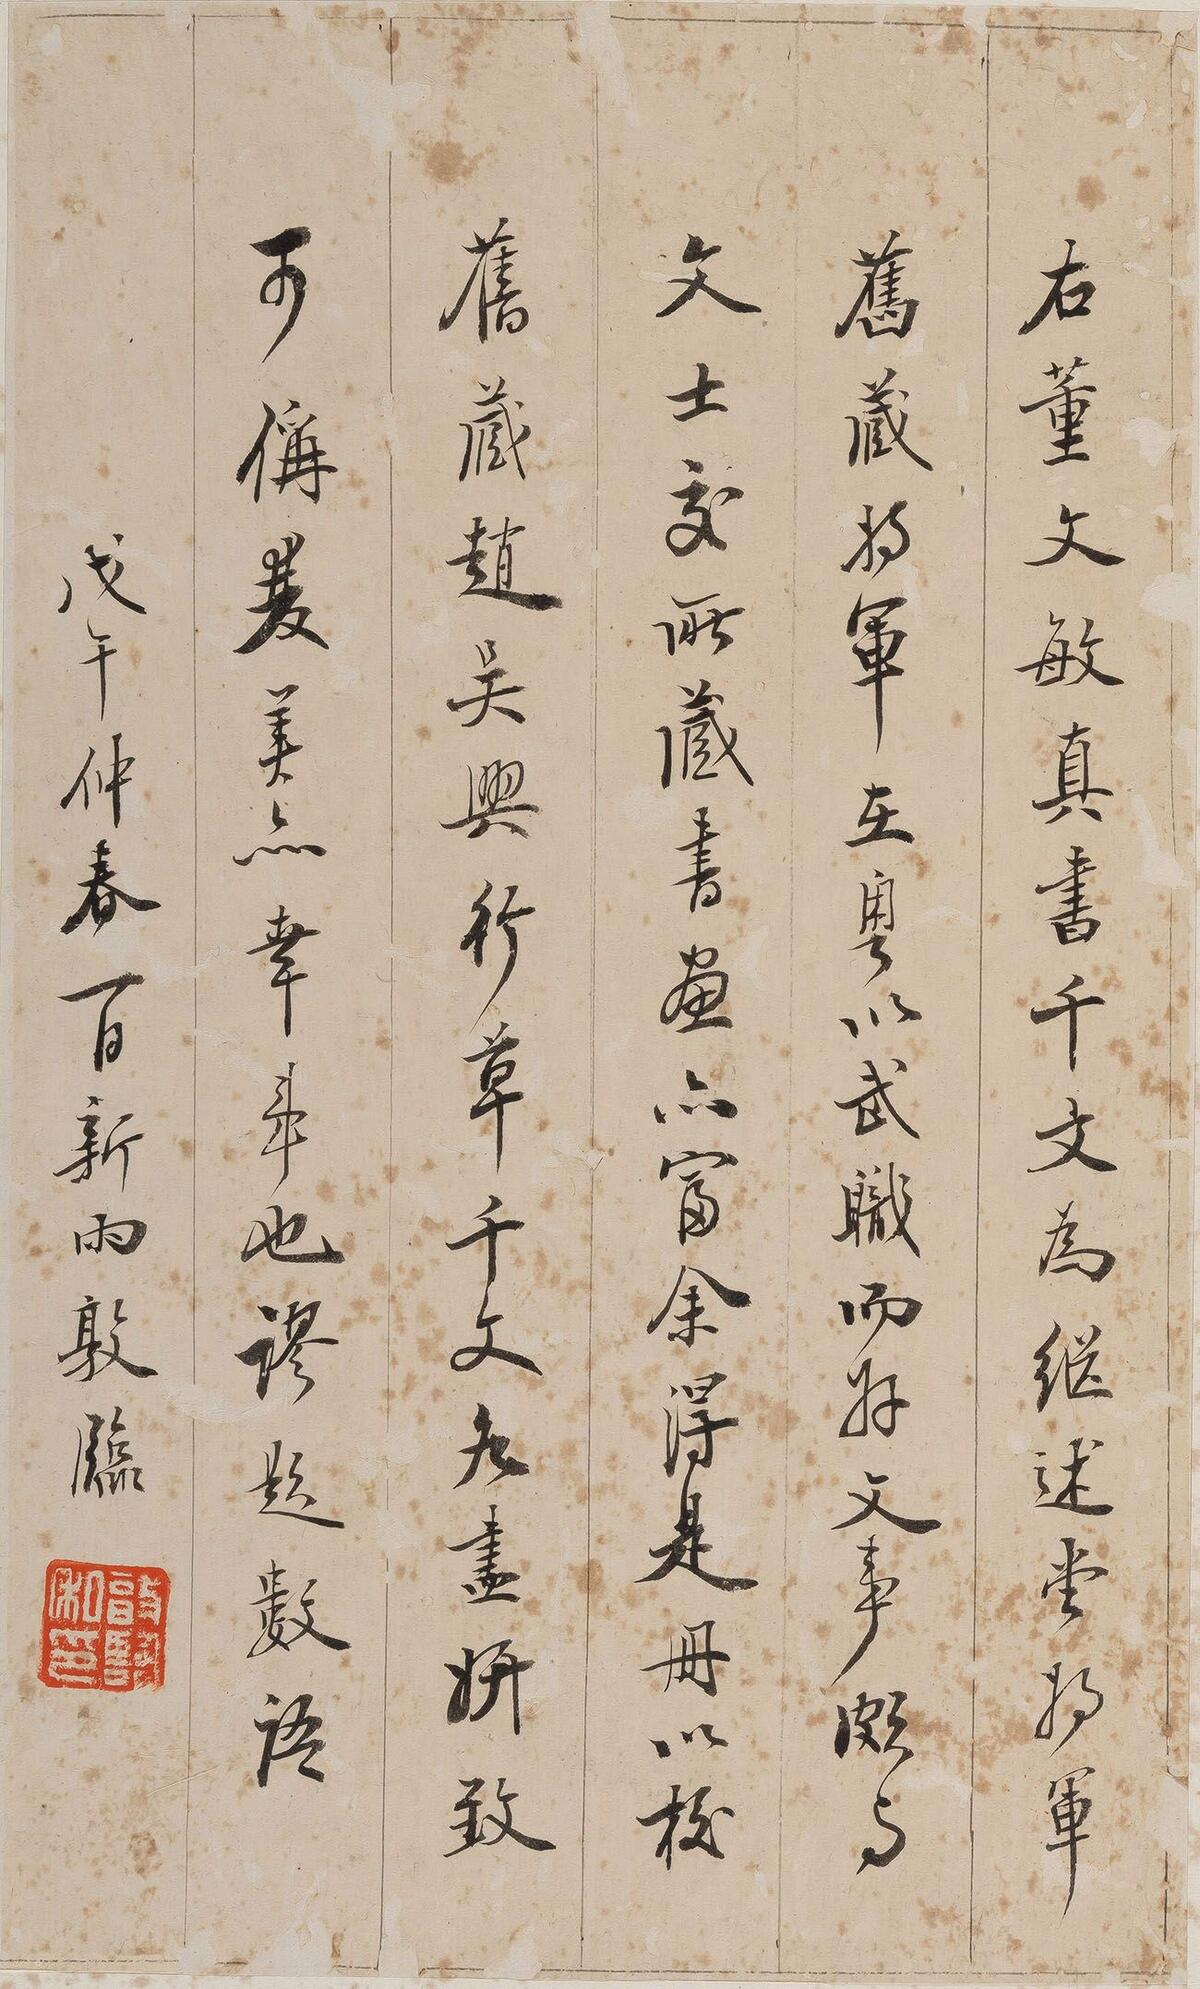 右董文敏真書千文為繼述堂將軍
舊藏將軍在粵以武職而好文事頗与
文士交所藏書畫亦富余得是冊以校
舊藏趙吴興行草千文各盡妍致
可稱雙美亦幸事也謬題數語
戊午仲春百新雨敦臨